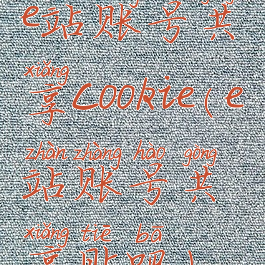 e站账号共
xiǎng
享cookie(e
zhàn zhàng hào gòng
站账号共
xiǎng tiē bā
享贴吧)